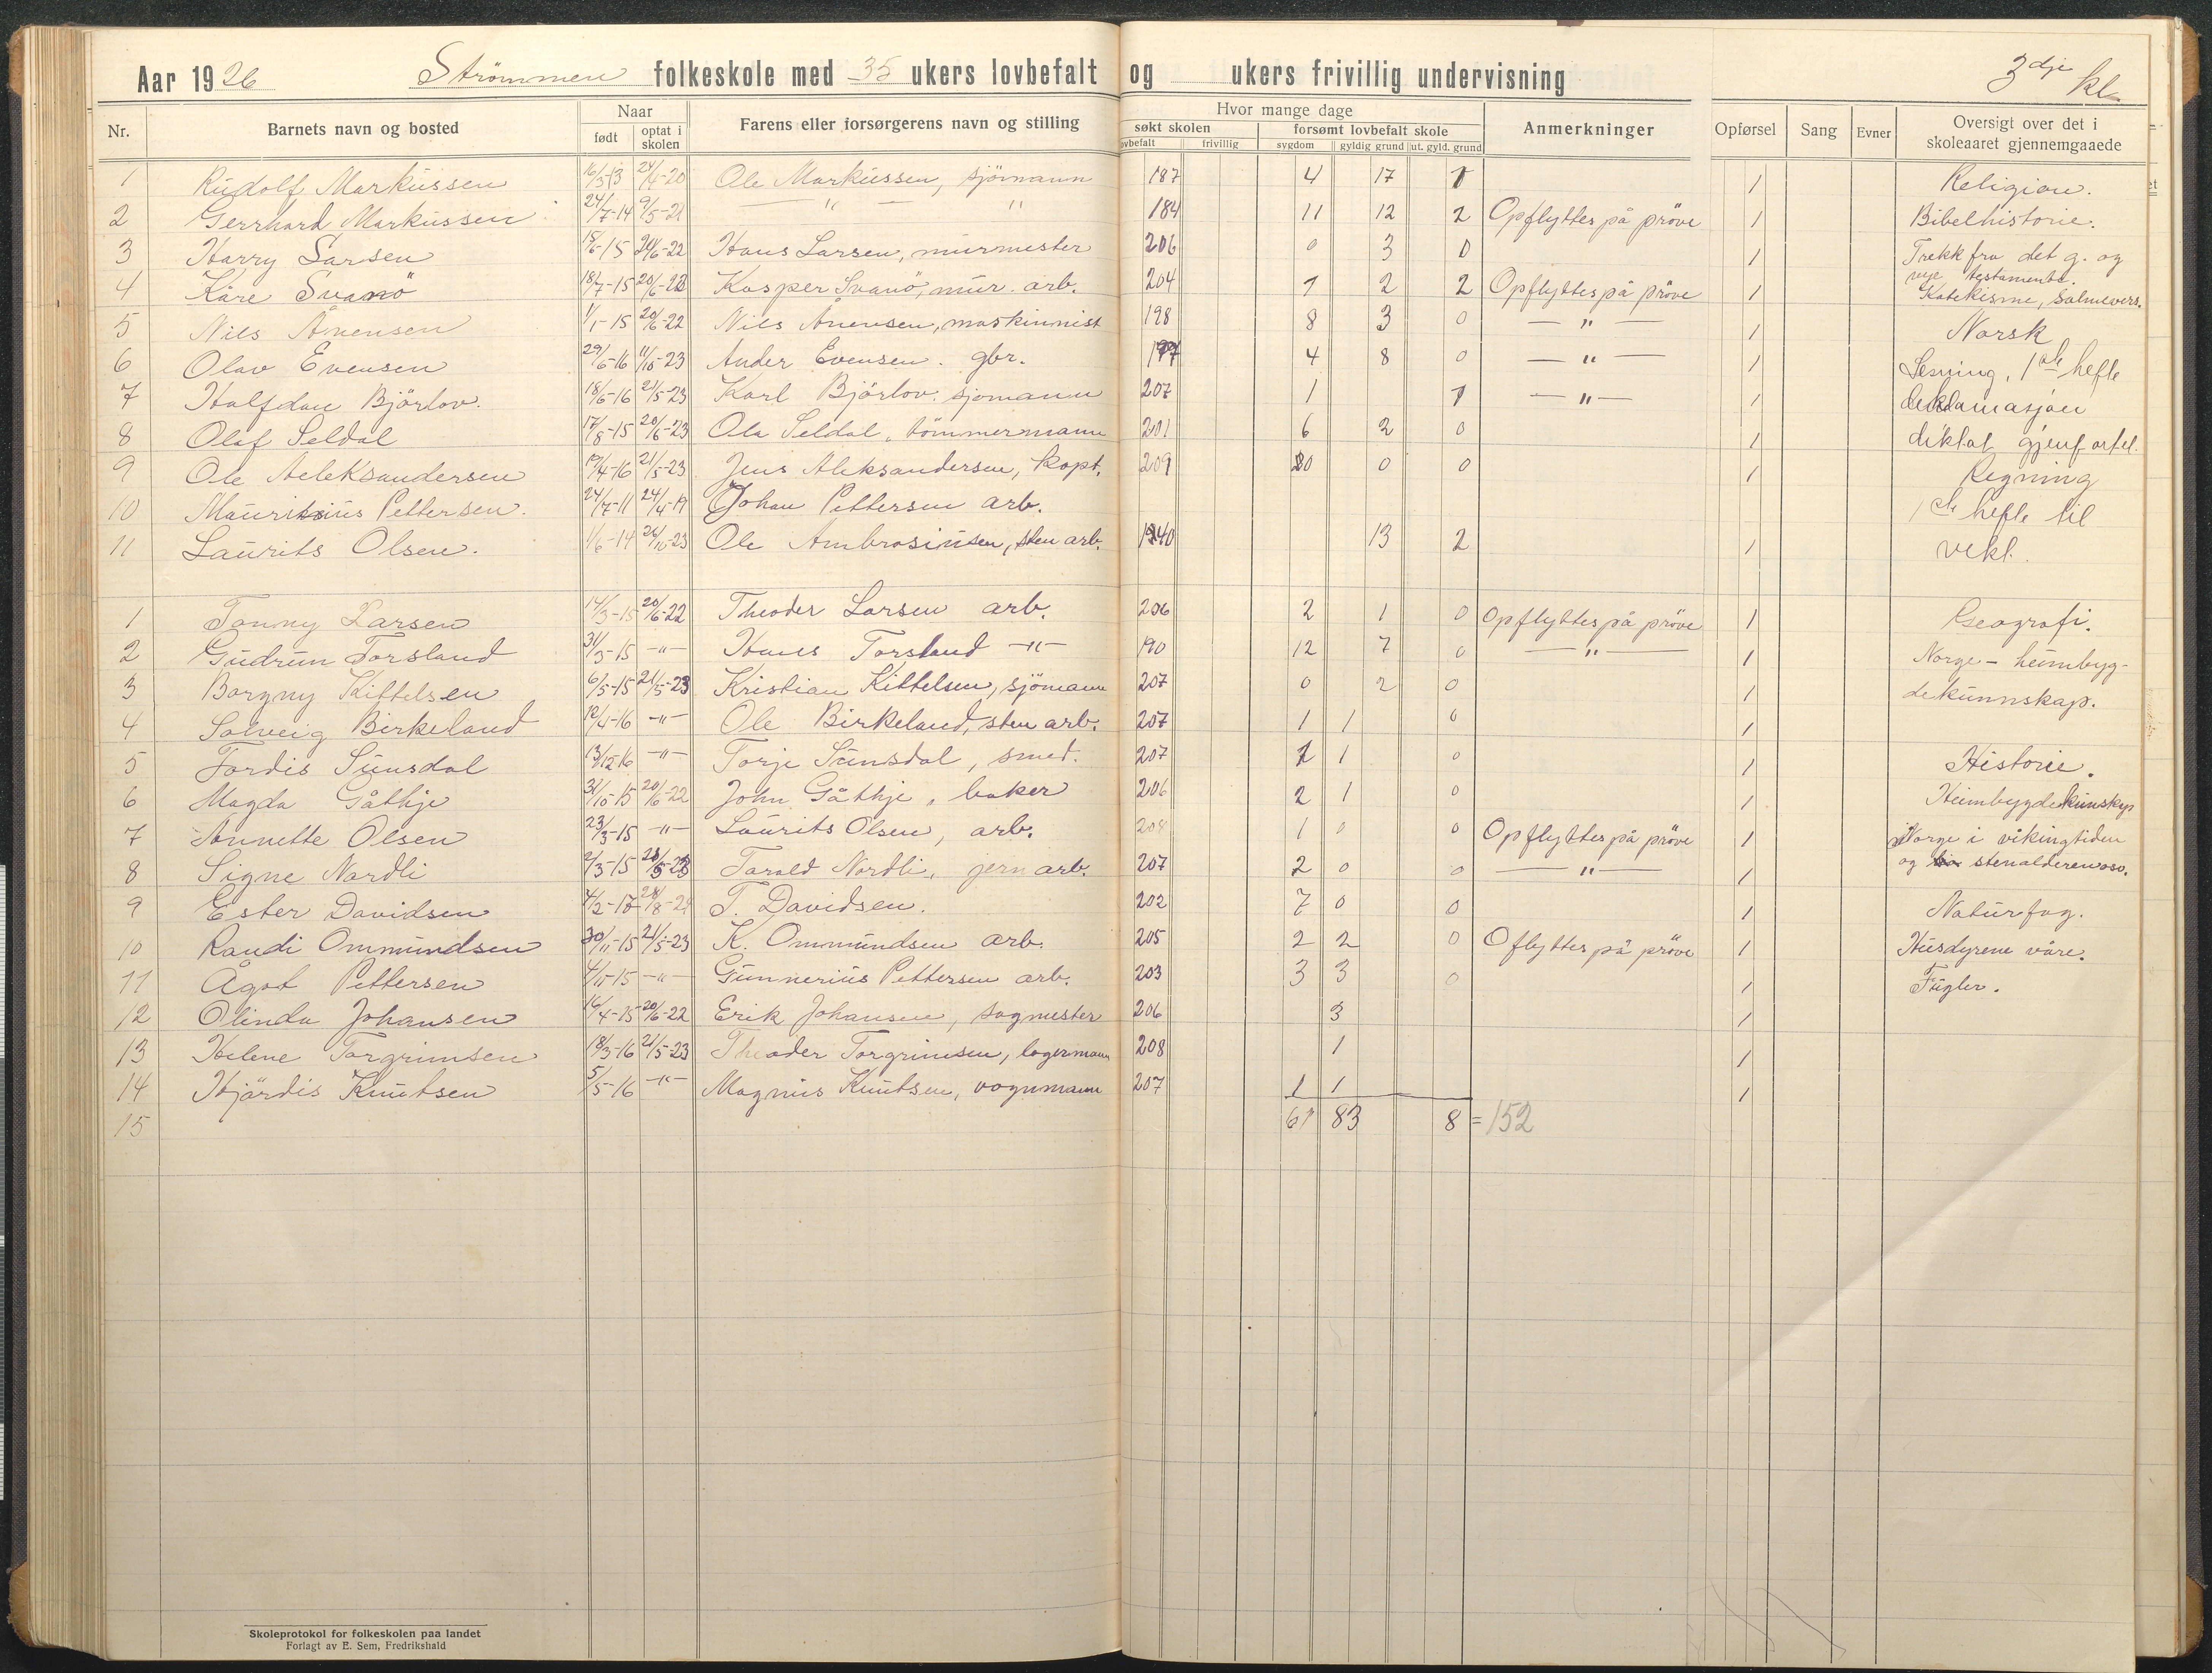 Aar 1926 Strömmen folkeskole med 35 ukers lovbefalt og ukers frivillig undervisning 3dje kl
Nr. Barnets navn og bosted Naar født optat i skolen Farens eller forsørgerens navn og stilling Hvor mange dage søkt skolen lovbefalt frivillig forsømt lovbefalt skole sygdom gyldig grund ut. gyld. grund Anmerkninger Opførsel Sang Evner Oversigt over det i skoleaaret gjennemgaaede
1 Rudolf Markussen 16/3-13 24/4-20 Ole Markussen, sjömann 187 4 17 1 1 Religion.
2 Gerrhard Markussen 24/7-14 9/5-21 — " — " 184 11 12 2 Opflyttes på pröve 1 Bibelhistorie.
3 Harry Larsen 15/6-15 20/6-22 Hans Larsen, murmester 206 0 3 0 1 Trekk fra det g. og
nye testamente.
4 Kåre Svanö 18/7-15 20/6-22 Kasper Svanö, mur. arb. 204 1 2 2 Opflyttes på pröve 1 Katekisme, Salmevers.
5 Nils Ånensen 1/1-15 20/6-22 Nils Ånensen, maskinnist 198 8 3 0 — " — 1 Norsk
6 Olav Evensen 29/6-16 11/10-23 Ander Evensen. gbr. 197 4 8 0 — " — 1 Lesning, 1ste hefte
7 Halfdan Björlov. 18/6-16 21/5-23 Karl Björlov. sjomann 207 1 1 — " — 1 deklamasjon
8 Olaf Seldal 17/8-15 20/6-23 Ola Seldal, tömmermann 201 6 2 0 1 diktat gjenfortel.
9 Ole Aeleksandersen 19/4-16 21/5-23 Jens Aleksandersen, kapt. 209 0 0 0 1 Regning
10 Mauritsius Pettersen. 24/7-11 24/4-19 Johan Pettersen arb. 1ste hefte til
11 Laurits Olsen. 1/6-14 26/10-23 Ole Ambrosiusen, sten arb. 140 13 2 1 vekt.
1 Tonny Larsen 14/3-15 20/6-22 Theoder Larsen arb. 206 2 1 0 Opflyttes på pröve 1 Geografi.
2 Gudrun Torsland 31/3-15 -"- Hans Torsland -"- 190 12 7 0 — " — 1 Norge - heimbyg-
3 Borgny Kittelsen 6/5-15 21/5-23 Kristian Kittelsen, sjömann 207 0 2 0 1 dekunnskap.
4 Solveig Birkeland 12/4-16 -"- Ole Birkeland, sten arb. 207 1 1 0 1
5 Tordis Sunsdal 13/12-16 -"- Torje Sunsdal, smed. 207 1 1 0 1 Historie.
6 Magda Gåthje 31/10-15 20/6-22 John Gåthje, baker 206 2 1 0 1 Heimbygdekunskap
7 Annette Olsen 23/3-15 -"- Laurits Olsen, arb. 208 1 0 0 Opflyttes på pröve 1 Norge i vikingtiden
8 Signe Nordli 2/3-15 28/5-23 Torald Nordli, jern arb. 207 2 0 0 — " — 1 og stenalderen oso.
9 Ester Davidsen 4/2-17 28/8-24 T. Davidsen. 202 7 0 0 1 Naturfag.
10 Randi Ommundsen 30/11-15 21/5-23 K. Ommundsen arb. 205 2 2 0 Oflyttes på pröve 1 Husdyrene våre.
11 Ågot Pettersen 4/10-15 -"- Gunnerius Pettersen arb. 203 3 3 0 1 Fugler.
12 Olinda Johansen 16/4-15 20/6-22 Erik Johansen, sagmester 206 3 1
13 Helene Torgrimsen 18/3-16 21/5-23 Theoder Torgrimsen, lagermann 208 1 1
14 Hjördis Knutsen 5/5-16 -"- Magnus Knutsen, vognmann 207 1 1 1
15 61 83 8 = 152
Skoleprotokol for folkeskolen paa landet
Forlagt av E. Sem, Fredrikshald